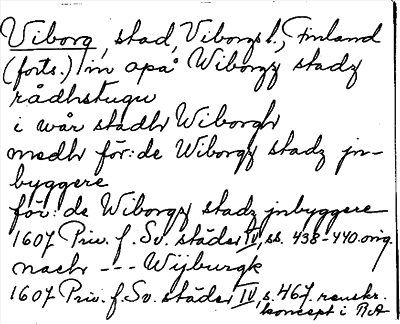 Viborg, stad, Viborgs l., Finland
(forts.) in opå Wiborgz stadz
rådhstugu
i wår stadh Wiborgh
medh för:de Wiborgz stadz jn-
byggere
för: de Wiborgz stadz jnbyggere
1607 Priv. f. Sv. städer IV, ss. 438-440. orig.
nach --- Wijburgk
1607 Priv. f. Sv. städer IV, s. 467. renskr.
koncept i RA